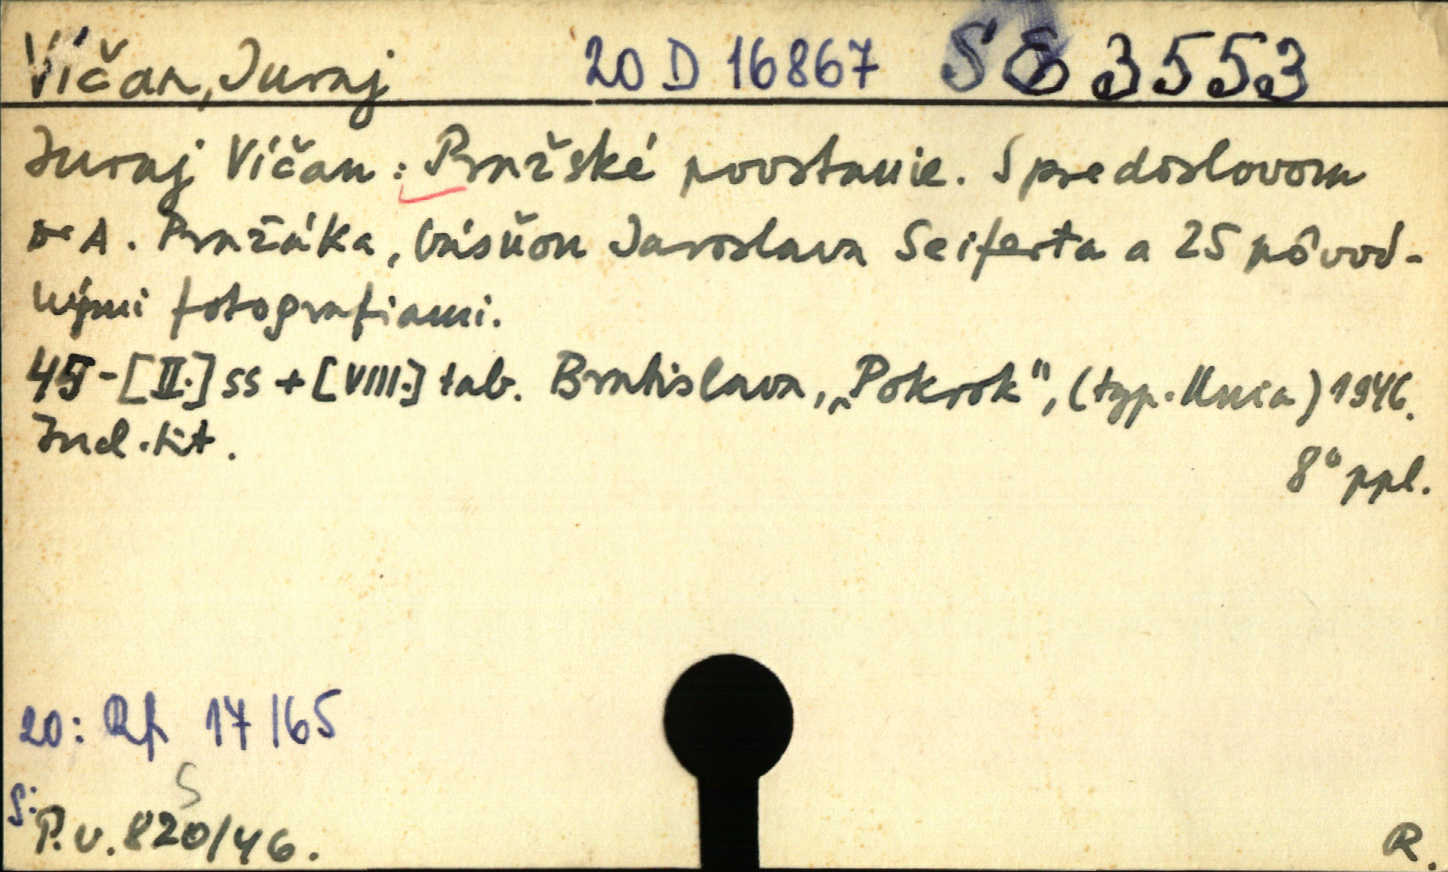 Víčan, Juraj 20 D 16867 SE 3553
Juraj Víčan: Pražské povstanie. S predoslovom
Dr A. Pražáka, básňou Jaroslava Seiferta a 25 pôvod-
nými fotografiami.
45-[II.] ss + [VIII.] tab. Bratislava, „Pokrok", (typ. Unia) 1946.
Ind. tit.
8° ppl.
20: Rf 17/65
S
S: P.v. 820/46.
R.